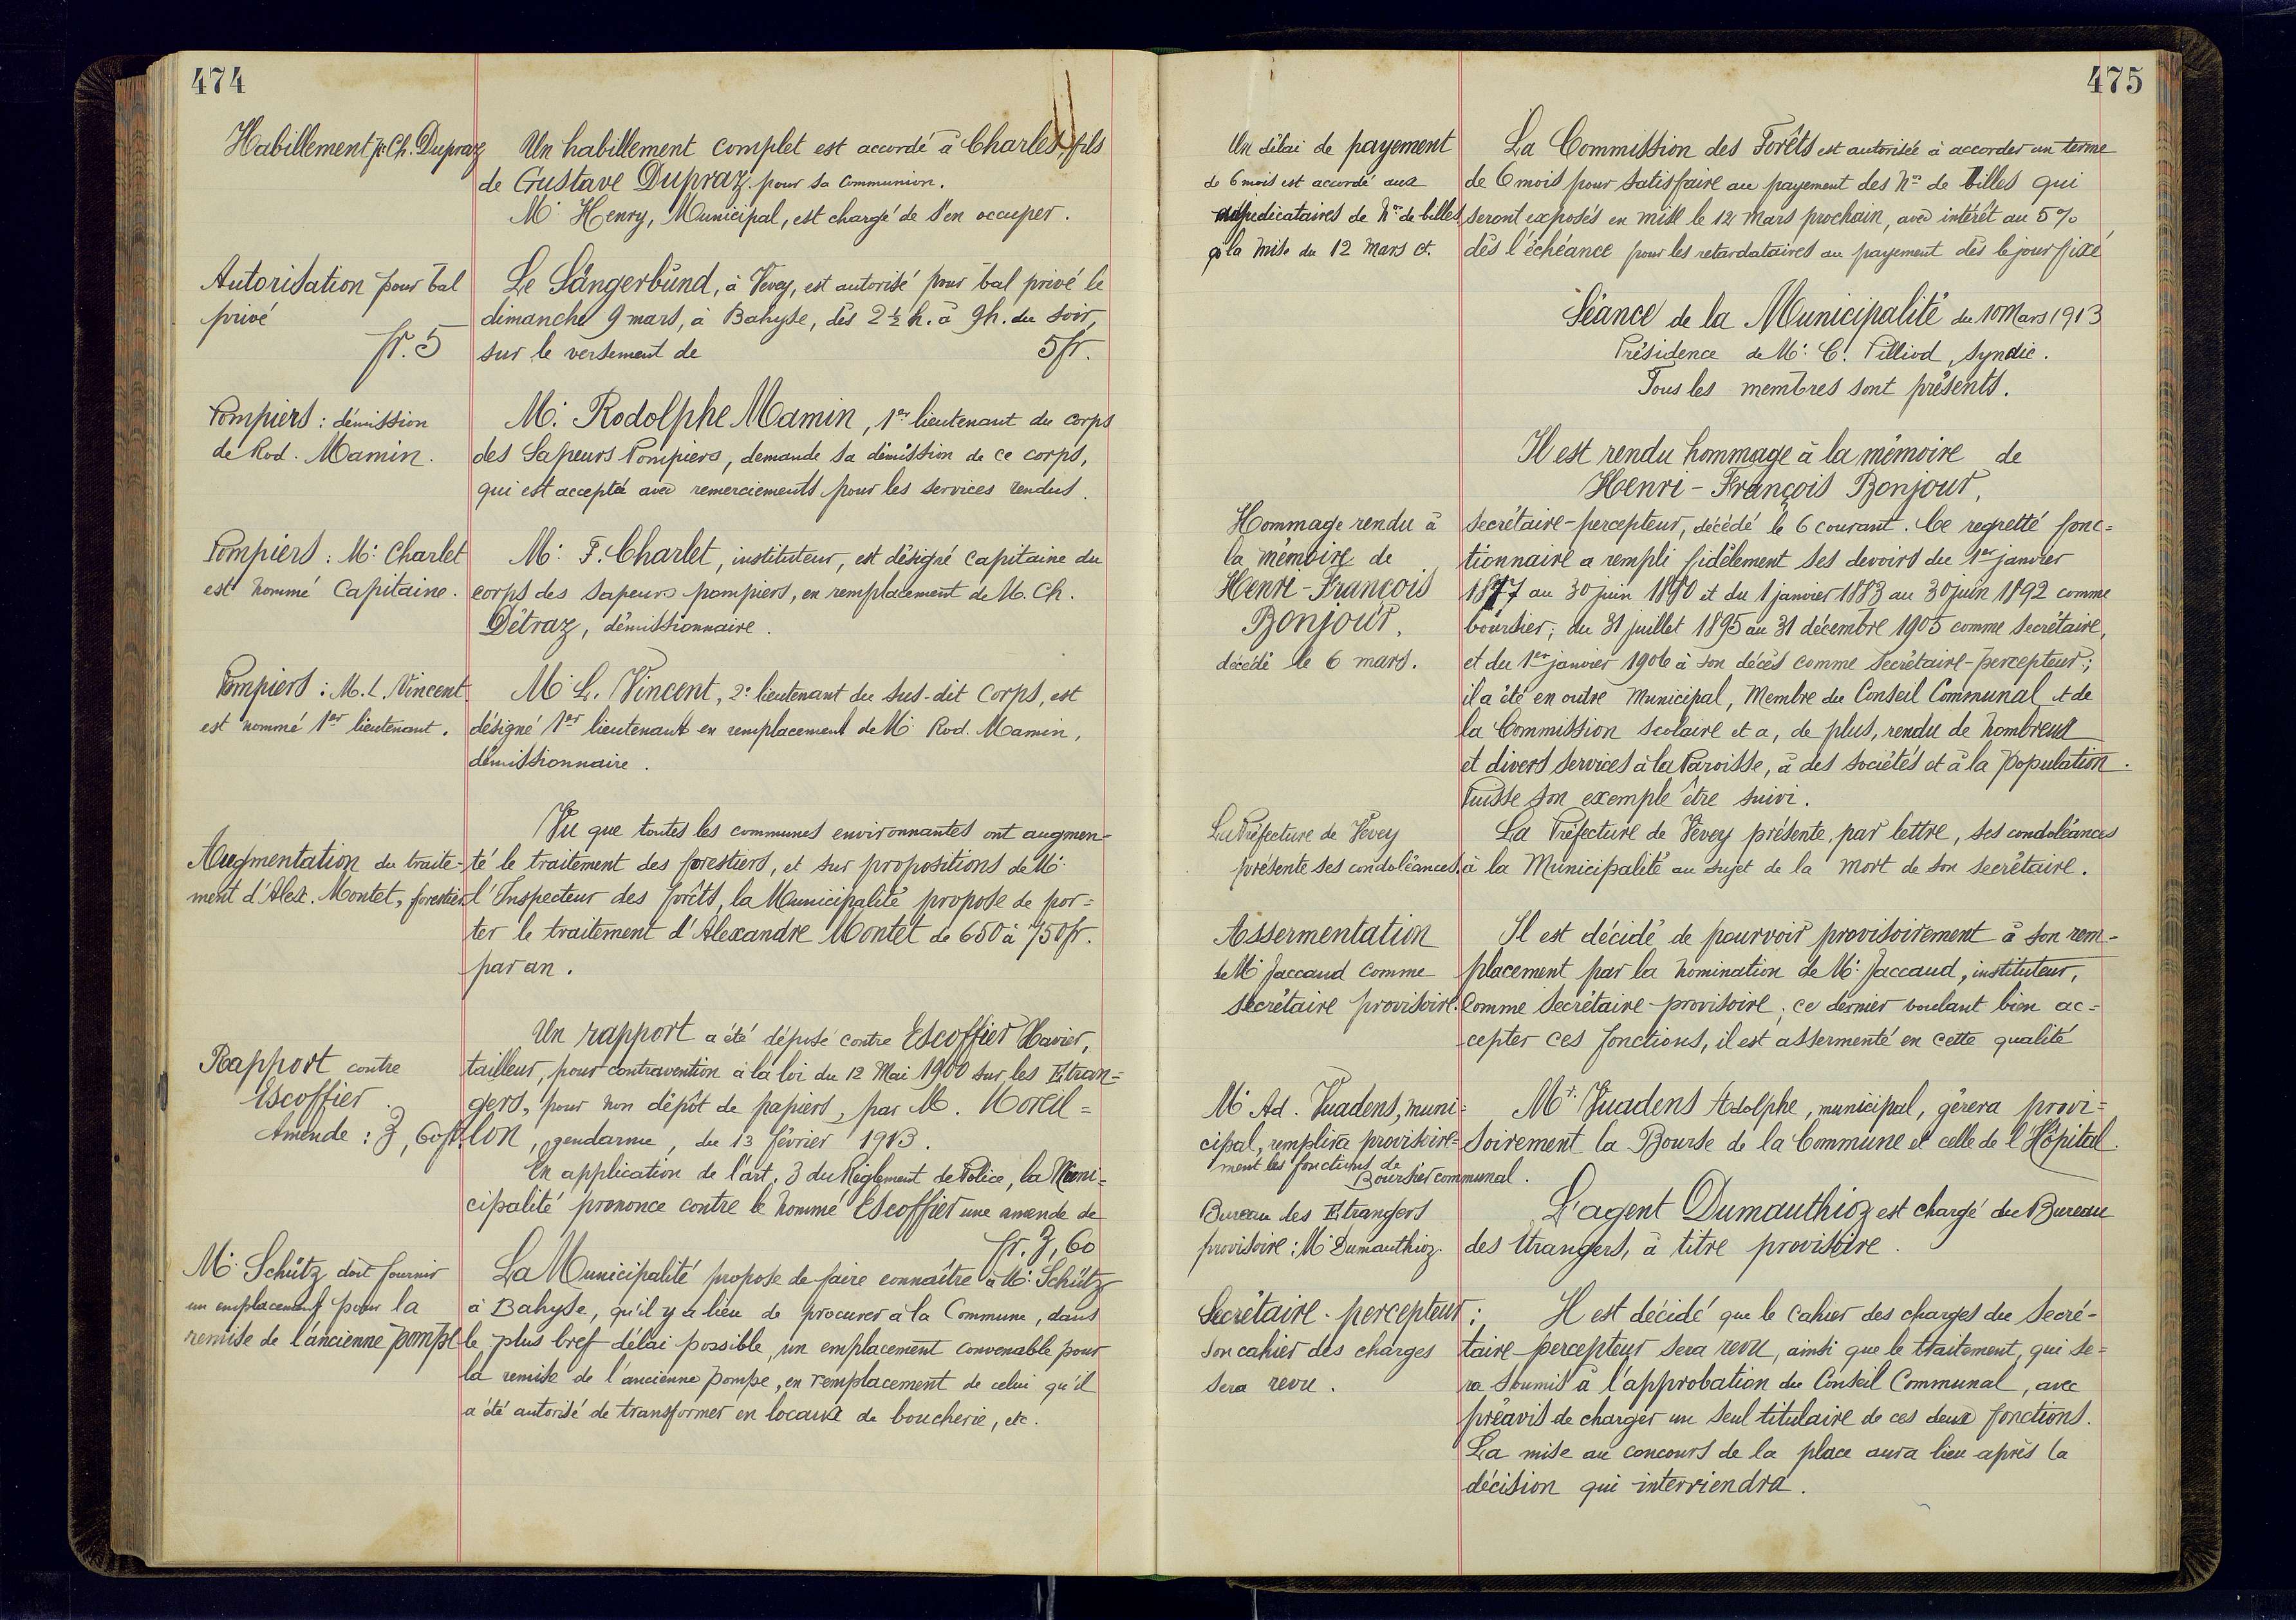 474
Habillement pr. Ch. Dupraz
Un habillement complet est accordé à Charles, fils
de Gustave Dupraz, pour sa communion.
Mr. Henry, Municipal, est chargé de s'en occuper.
Autorisation pour bal
privé
fr. 5
Le Sängerbund, à Vevey, est autorisé pour bal privé le
dimanche 9 mars, à Bahyse, dès 2 ½ h. à 9 h. du soir,
sur le versement de 5 fr.
Pompiers : démission
de Rod. Mamin.
M. Rodolphe Mamin, 1er lieutenant du corps
des Sapeurs Pompiers, demande sa démission de ce corps,
qui est accepté avec remerciements pour les services rendus.
Pompiers : Mr. Charlet
est nommé Capitaine.
Mr. F. Charlet, instituteur, est désigné capitaine du
corps des sapeurs pompiers, en remplacement de M. Ch.
Détraz, démissionnaire.
Pompiers : M. L. Vincent
est nommé 1er lieutenant.
Mr L. Vincent, 2e lieutenant du sus-dit corps, est
désigné 1er lieutenant en remplacement de Mr. Rod. Mamin,
démissionnaire.
Augmentation du traite-
ment d'Alex. Montet, forestier
Vu que toutes les communes environnantes ont augmen-
té le traitement des forestiers, et sur propositions de Mr.
l'Inspecteur des forêts, la Municipalité propose de por=
ter le traitement d'Alexandre Montet de 650 à 750 fr.
par an.
Rapport contre
Escoffier.
Amende : 3,60 fr.
Un rapport a été déposé contre Escoffier Xavier,
tailleur, pour contravention à la loi du 12 Mai 1900 sur les Etran=
gers, pour non dépôt de papiers, par M. Moreil=
lon, gendarme, du 13 février 1913.
En application de l'art. 3 du Règlement de Police, la Muni=
cipalité prononce contre le nommé Escoffier une amende de
fr. 3,60
Mr. Schütz doit fournir
un emplacement pour la
remise de l'ancienne pompe
La Municipalité propose de faire connaître à Mr. Schütz
à Bahyse, qu'il y a lieu de procurer à la Commune, dans
le plus bref délai possible, un emplacement convenable pour
la remise de l'ancienne pompe, en remplacement de celui qu'il
a été autorisé de transformer en locaux de boucherie, etc.
475
Un délai de payement
de 6 mois est accordé aux
adjudicataires de Nos de billes
à la mise du 12 mars ct.
La Commission des Forêts est autorisée à accorder un terme
de 6 mois pour satisfaire au payement des Nos de billes qui
seront exposés en mise le 12 mars prochain, avec intérêt au 5%
dès l'échéance pour les retardataires au payement dès le jour fixé
Séance de la Municipalité du 10 Mars 1913
Présidence de Mr. C. Pilliod, Syndic.
Tous les membres sont présents.
Hommage rendu à
la mémoire de
Henri-François
Bonjour,
décédé le 6 mars.
Il est rendu hommage à la mémoire de
Henri-François Bonjour,
secrétaire-percepteur, décédé le 6 courant. Ce regretté fonc=
tionnaire a rempli fidèlement ses devoirs du 1er janvier
1877 au 30 juin 1890 et du 1 janvier 1883 au 30 juin 1892 comme
boursier; du 31 juillet 1895 au 31 décembre 1905 comme secrétaire,
et du 1er janvier 1906 à son décès comme secrétaire-percepteur;
il a été en outre Municipal, Membre du Conseil Communal et de
la Commission scolaire et a, de plus, rendu de nombreux
et divers services à la Paroisse, à des sociétés et à la population.
Puisse son exemple être suivi.
La Préfecture de Vevey
présente ses condoléances.
La Préfecture de Vevey présente, par lettre, ses condoléances
à la Municipalité au sujet de la mort de son secrétaire.
Assermentation
de Mr Jaccaud comme
secrétaire provisoire.
Il est décidé de pourvoir provisoirement à son rem-
placement par la nomination de Mr. Jaccaud, instituteur,
comme secrétaire-provisoire; ce dernier voulant bien ac=
cepter ces fonctions, il est assermenté en cette qualité
Mr Ad. Vuadens, muni=
cipal, remplira provisoire=
ment les fonctions de
Boursier communal.
Mr. Vuadens Adolphe, municipal, gèrera provi=
soirement la Bourse de la Commune et celle de l'Hôpital.
Bureau des Etrangers
provisoire : Mr Dumauthioz.
L'agent Dumauthioz est chargé du Bureau
des Etrangers, à titre provisoire.
Secrétaire-percepteur :
son cahier des charges
sera revu.
Il est décidé que le cahier des charges du secré-
taire-percepteur sera revu, ainsi que le traitement, qui se=
ra soumis à l'approbation du Conseil Communal, avec
préavis de charger un seul titulaire de ces deux fonctions.
La mise au concours de la place aura lieu après la
décision qui interviendra.